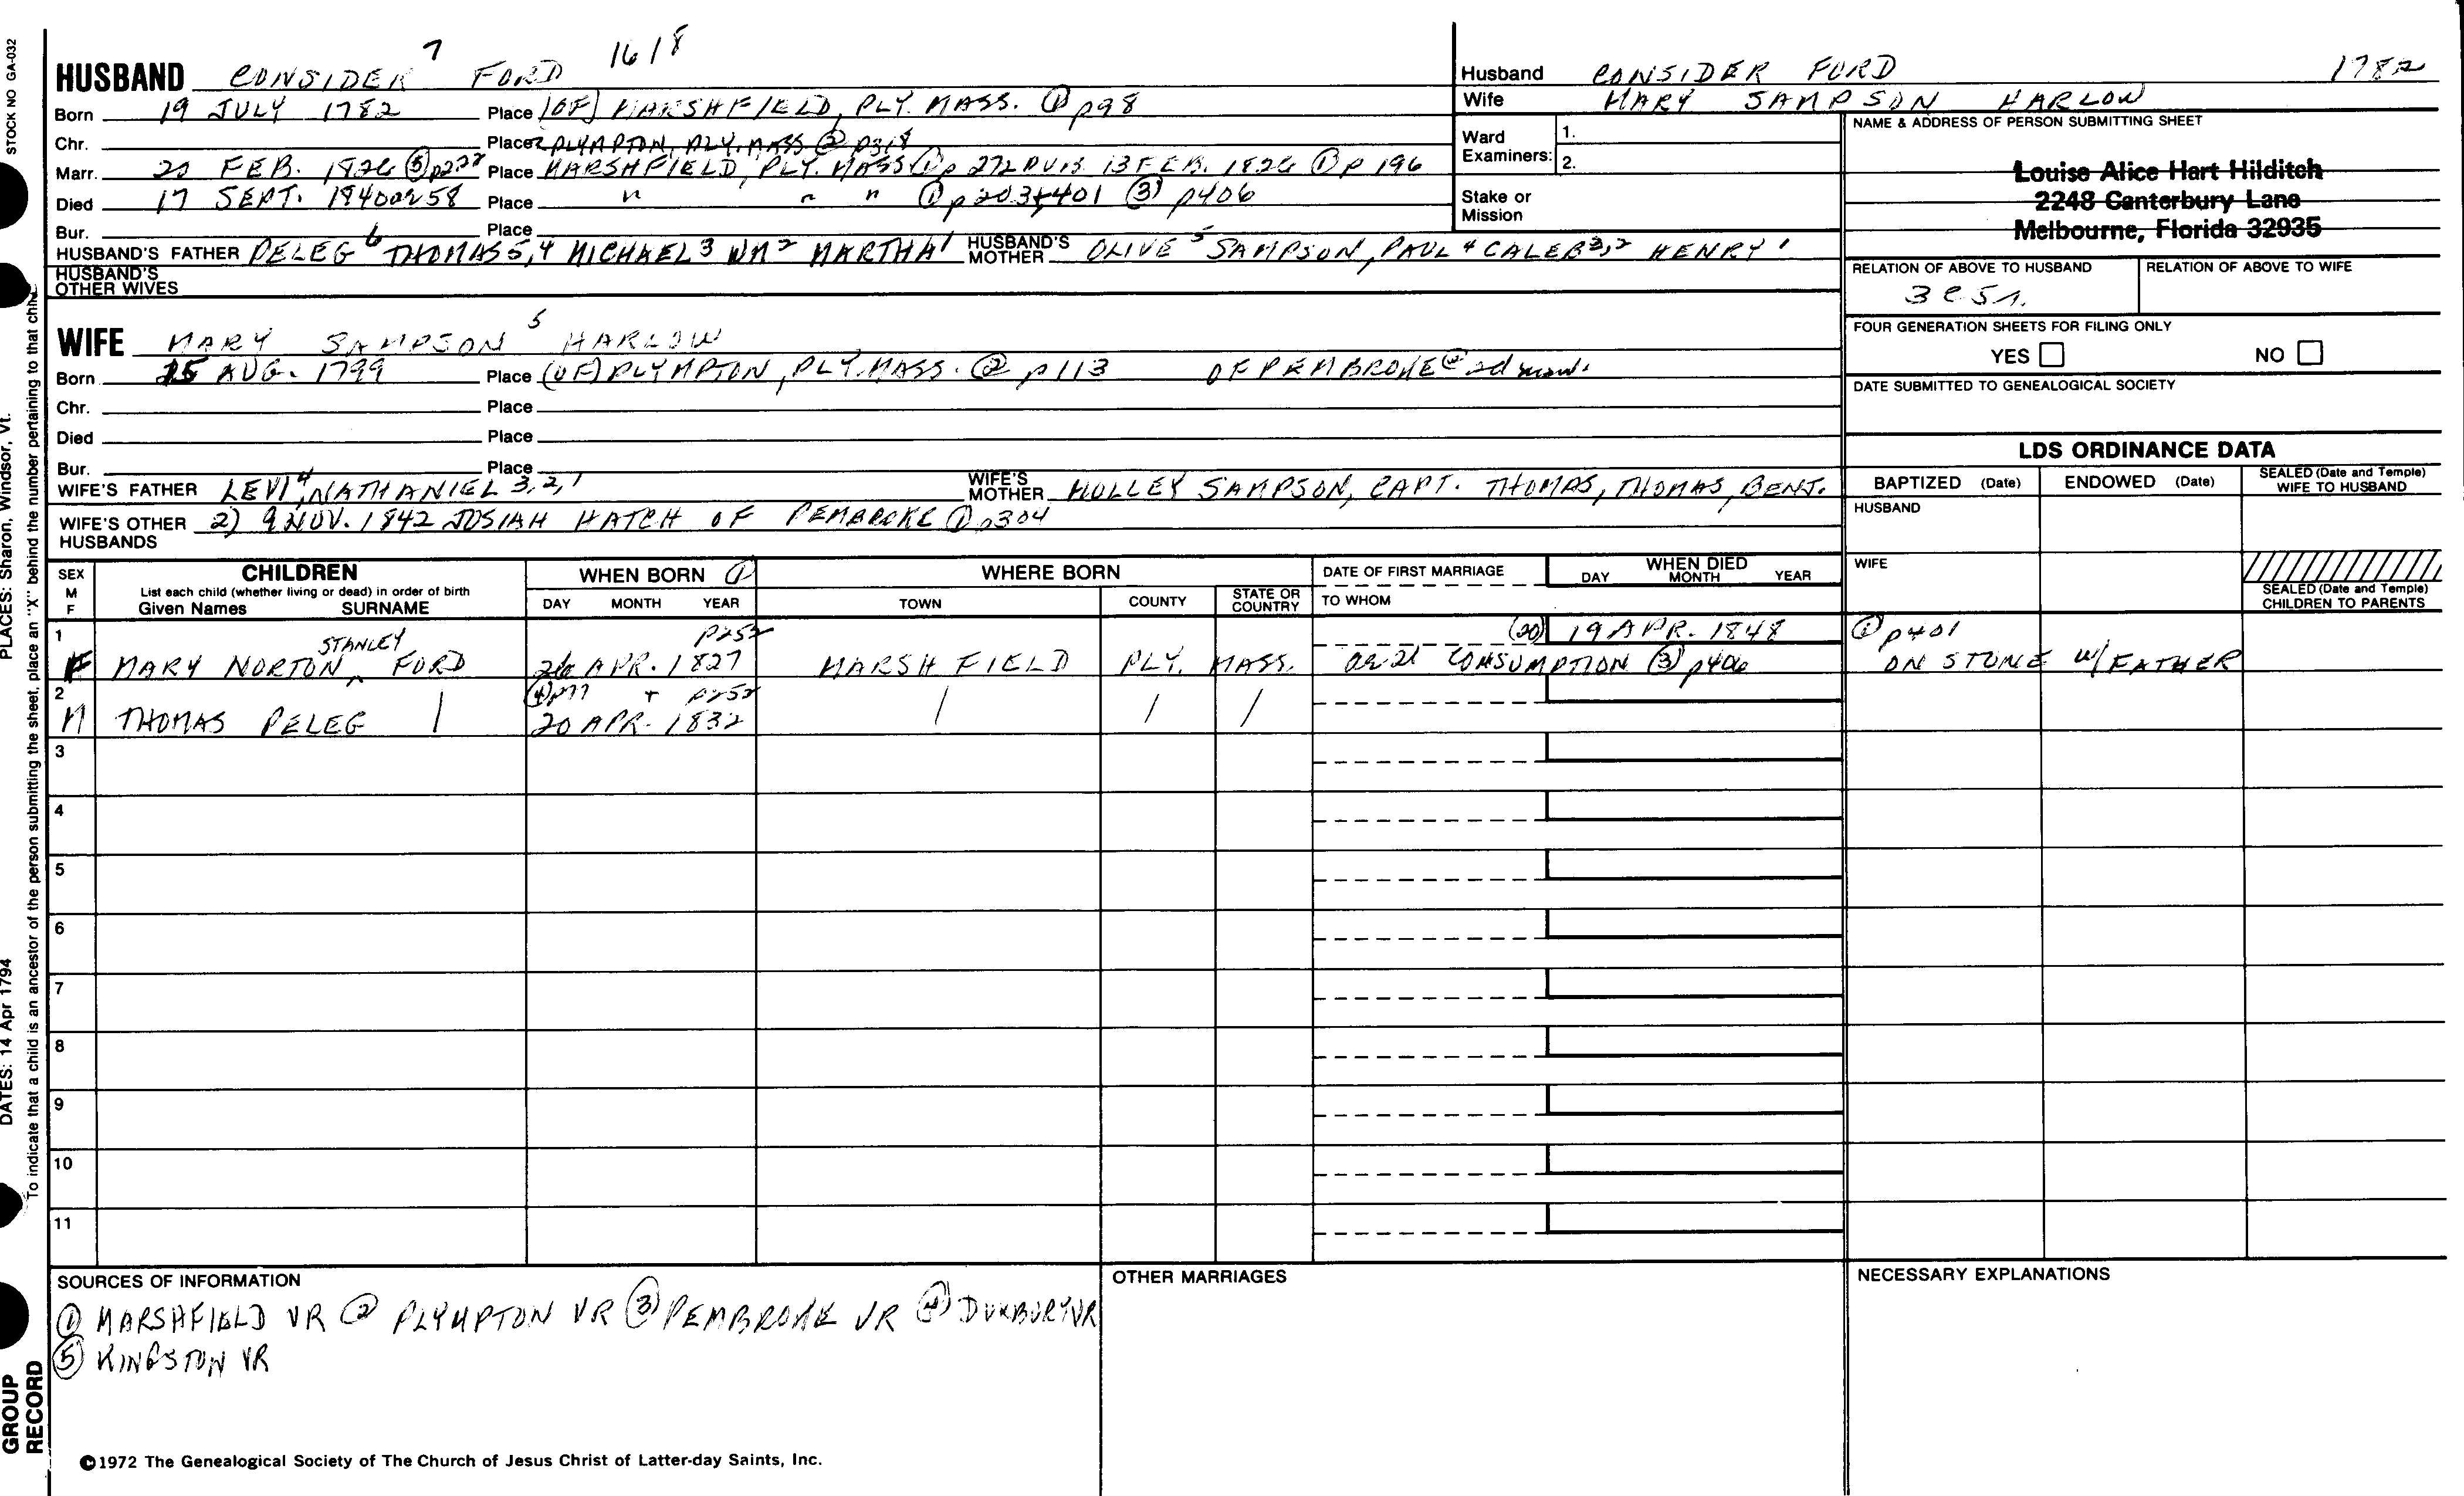 STOCK NO GA-032
7 1618
HUSBAND CONSIDER FORD
Born 19 JULY 1782 Place (OF) MARSHFIELD, PLY. MASS. ① p98
Chr. Place PLYMPTON, PLY. MASS. ② p318
Marr. 20 FEB. 1826 ⑤ Place MARSHFIELD, PLY. MASS ① p 272 13 FEB. 1826 ① p 196
Died 17 SEPT. 1840 ae 58 Place " " " ① p 203+401 ③ p406
Bur. Place
HUSBAND'S FATHER PELEG 6 THOMAS 5,4 MICHAEL 3 WM 2 MARTHA 1 HUSBAND'S MOTHER OLIVE 5 SAMPSON, PAUL 4 CALEB 3,2 HENRY 1
HUSBAND'S OTHER WIVES
WIFE MARY SAMPSON 5 HARLOW
Born 25 AUG. 1799 Place (OF) PLYMPTON, PLY. MASS. ② p113 OF PEMBROKE @ 2d marr.
Chr. Place
Died Place
Bur. Place
WIFE'S FATHER LEVI 4, NATHANIEL 3,2,1 WIFE'S MOTHER HOLLEY SAMPSON, CAPT. THOMAS, THOMAS, BENJ.
WIFE'S OTHER HUSBANDS 2) 9 NOV. 1842 JOSIAH HATCH OF PEMBROKE ① p304
Husband CONSIDER FORD 1782
Wife MARY SAMPSON HARLOW
Ward Examiners: 1.
2.
Stake or Mission
NAME & ADDRESS OF PERSON SUBMITTING SHEET
Louise Alice Hart Hilditch
2248 Canterbury Lane
Melbourne, Florida 32935
RELATION OF ABOVE TO HUSBAND RELATION OF ABOVE TO WIFE
3 C 5 r.
FOUR GENERATION SHEETS FOR FILING ONLY
YES NO
DATE SUBMITTED TO GENEALOGICAL SOCIETY
LDS ORDINANCE DATA
BAPTIZED (Date) ENDOWED (Date) SEALED (Date and Temple) WIFE TO HUSBAND
HUSBAND
WIFE
SEALED (Date and Temple) CHILDREN TO PARENTS
SEX M F CHILDREN WHEN BORN ① WHERE BORN DATE OF FIRST MARRIAGE WHEN DIED
List each child (whether living or dead) in order of birth
Given Names SURNAME DAY MONTH YEAR TOWN COUNTY STATE OR COUNTRY TO WHOM DAY MONTH YEAR
1 STANLEY p252 (20) 19 APR. 1848 ① p401
F MARY NORTON ^ FORD 26 APR. 1827 MARSHFIELD PLY. MASS. ae 21 CONSUMPTION ③ p406 ON STONE W/ FATHER
2 ④ p77 + p252
M THOMAS PELEG | 20 APR. 1832 / / /
3
4
5
6
7
8
9
10
11
SOURCES OF INFORMATION
① MARSHFIELD VR ② PLYMPTON VR ③ PEMBROKE VR ④ DUXBURY VR
⑤ KINGSTON VR
OTHER MARRIAGES
NECESSARY EXPLANATIONS
©1972 The Genealogical Society of The Church of Jesus Christ of Latter-day Saints, Inc.
PLACES: Sharon, Windsor, Vt.
DATES: 14 Apr 1794
To indicate that a child is an ancestor of the person submitting the sheet, place an "X" behind the number pertaining to that child.
GROUP RECORD